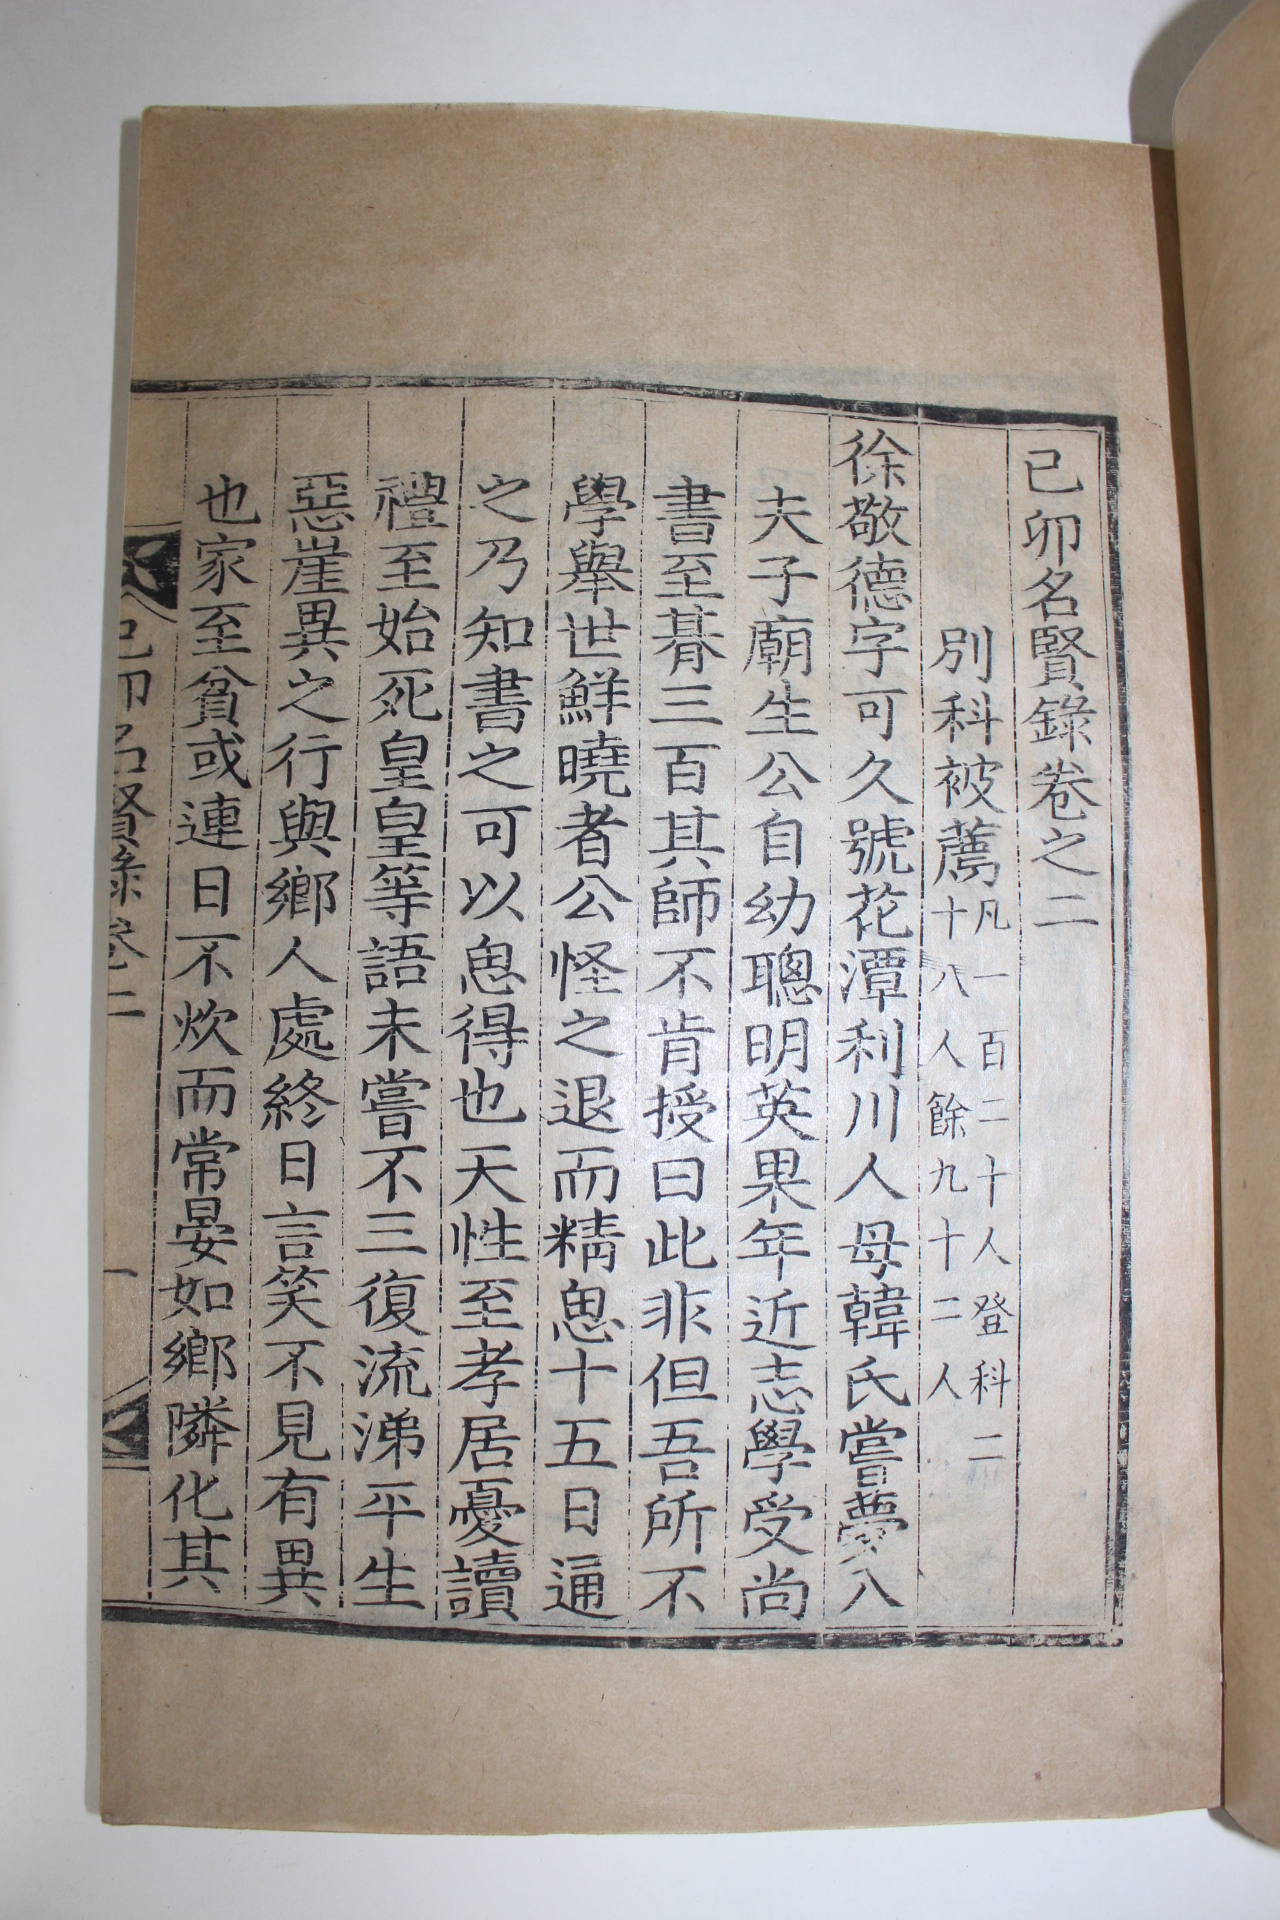 己卯名賢錄卷之二
別科被薦凡一百二十人登科二
十八人餘九十二人
徐敬德字可久號花潭利川人母韓氏嘗夢入
夫子廟生公自幼聰明英果年近志學受尚
書至朞三百其師不肯授曰此非但吾所不
學舉世鮮曉者公怪之退而精思十五日通
之乃知書之可以思得也天性至孝居憂讀
禮至始死皇皇等語未嘗不三復流涕平生
惡崖異之行與鄉人處終日言笑不見有異
也家至貧或連日不炊而常晏如鄉隣化其
己卯名賢錄卷二 一